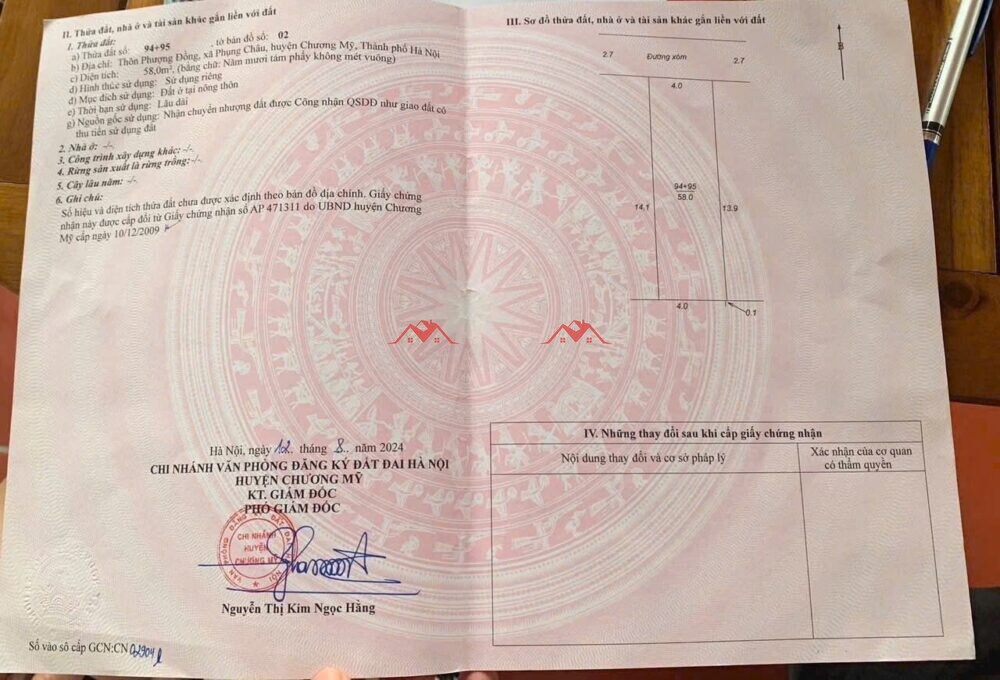 II. Thửa đất, nhà ở và tài sản khác gắn liền với đất
1. Thửa đất:
a) Thửa đất số: 94+95 , tờ bản đồ số: 02
b) Địa chỉ: Thôn Phượng Đồng, xã Phụng Châu, huyện Chương Mỹ, Thành phố Hà Nội
c) Diện tích: 58,0m², (bằng chữ: Năm mươi tám phẩy không mét vuông)
d) Hình thức sử dụng: Sử dụng riêng
đ) Mục đích sử dụng: Đất ở tại nông thôn
e) Thời hạn sử dụng: Lâu dài
g) Nguồn gốc sử dụng: Nhận chuyển nhượng đất được Công nhận QSDĐ như giao đất có
thu tiền sử dụng đất
2. Nhà ở: -/-
3. Công trình xây dựng khác: -/-
4. Rừng sản xuất là rừng trồng:-/-
5. Cây lâu năm: -/-
6. Ghi chú:
Số hiệu và diện tích thửa đất chưa được xác định theo bản đồ địa chính. Giấy chứng
nhận này được cấp đổi từ Giấy chứng nhận số AP 471311 do UBND huyện Chương
Mỹ cấp ngày 10/12/2009
Hà Nội, ngày 12 tháng 8.. năm 2024
CHI NHÁNH VĂN PHÒNG ĐĂNG KÝ ĐẤT ĐAI HÀ NỘI
HUYỆN CHƯƠNG MỸ
KT. GIÁM ĐỐC
PHÓ GIÁM ĐỐC
VĂN PHÒNG ĐĂNG KÝ ĐẤT ĐAI HÀ NỘI
CHI NHÁNH
HUYỆN
CHƯƠNG MỸ
Nguyễn Thị Kim Ngọc Hằng
Số vào sổ cấp GCN:CN 02904
III. Sơ đồ thửa đất, nhà ở và tài sản khác gắn liền với đất
B
2.7 Đường xóm 2.7
4.0
94+95
58.0
14.1 13.9
4.0 0.1
IV. Những thay đổi sau khi cấp giấy chứng nhận
Nội dung thay đổi và cơ sở pháp lý
Xác nhận của cơ quan
có thẩm quyền